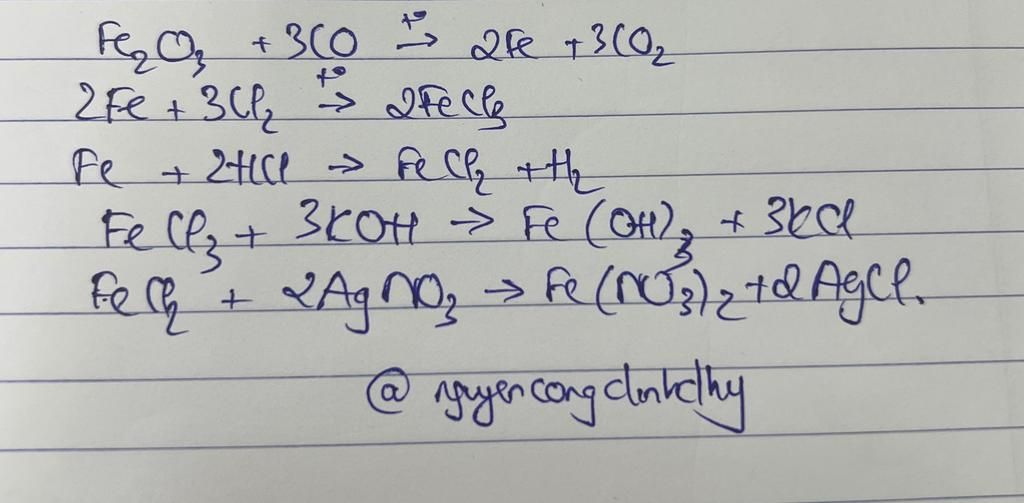 Fe₂O₃ + 3CO t° → 2Fe + 3CO₂
2Fe + 3Cl₂ t° → 2FeCl₃
Fe + 2HCl → FeCl₂ + H₂
FeCl₃ + 3KOH → Fe(OH)₃ + 3KCl
FeCl₂ + 2AgNO₃ → Fe(NO₃)₂ + 2AgCl.
@